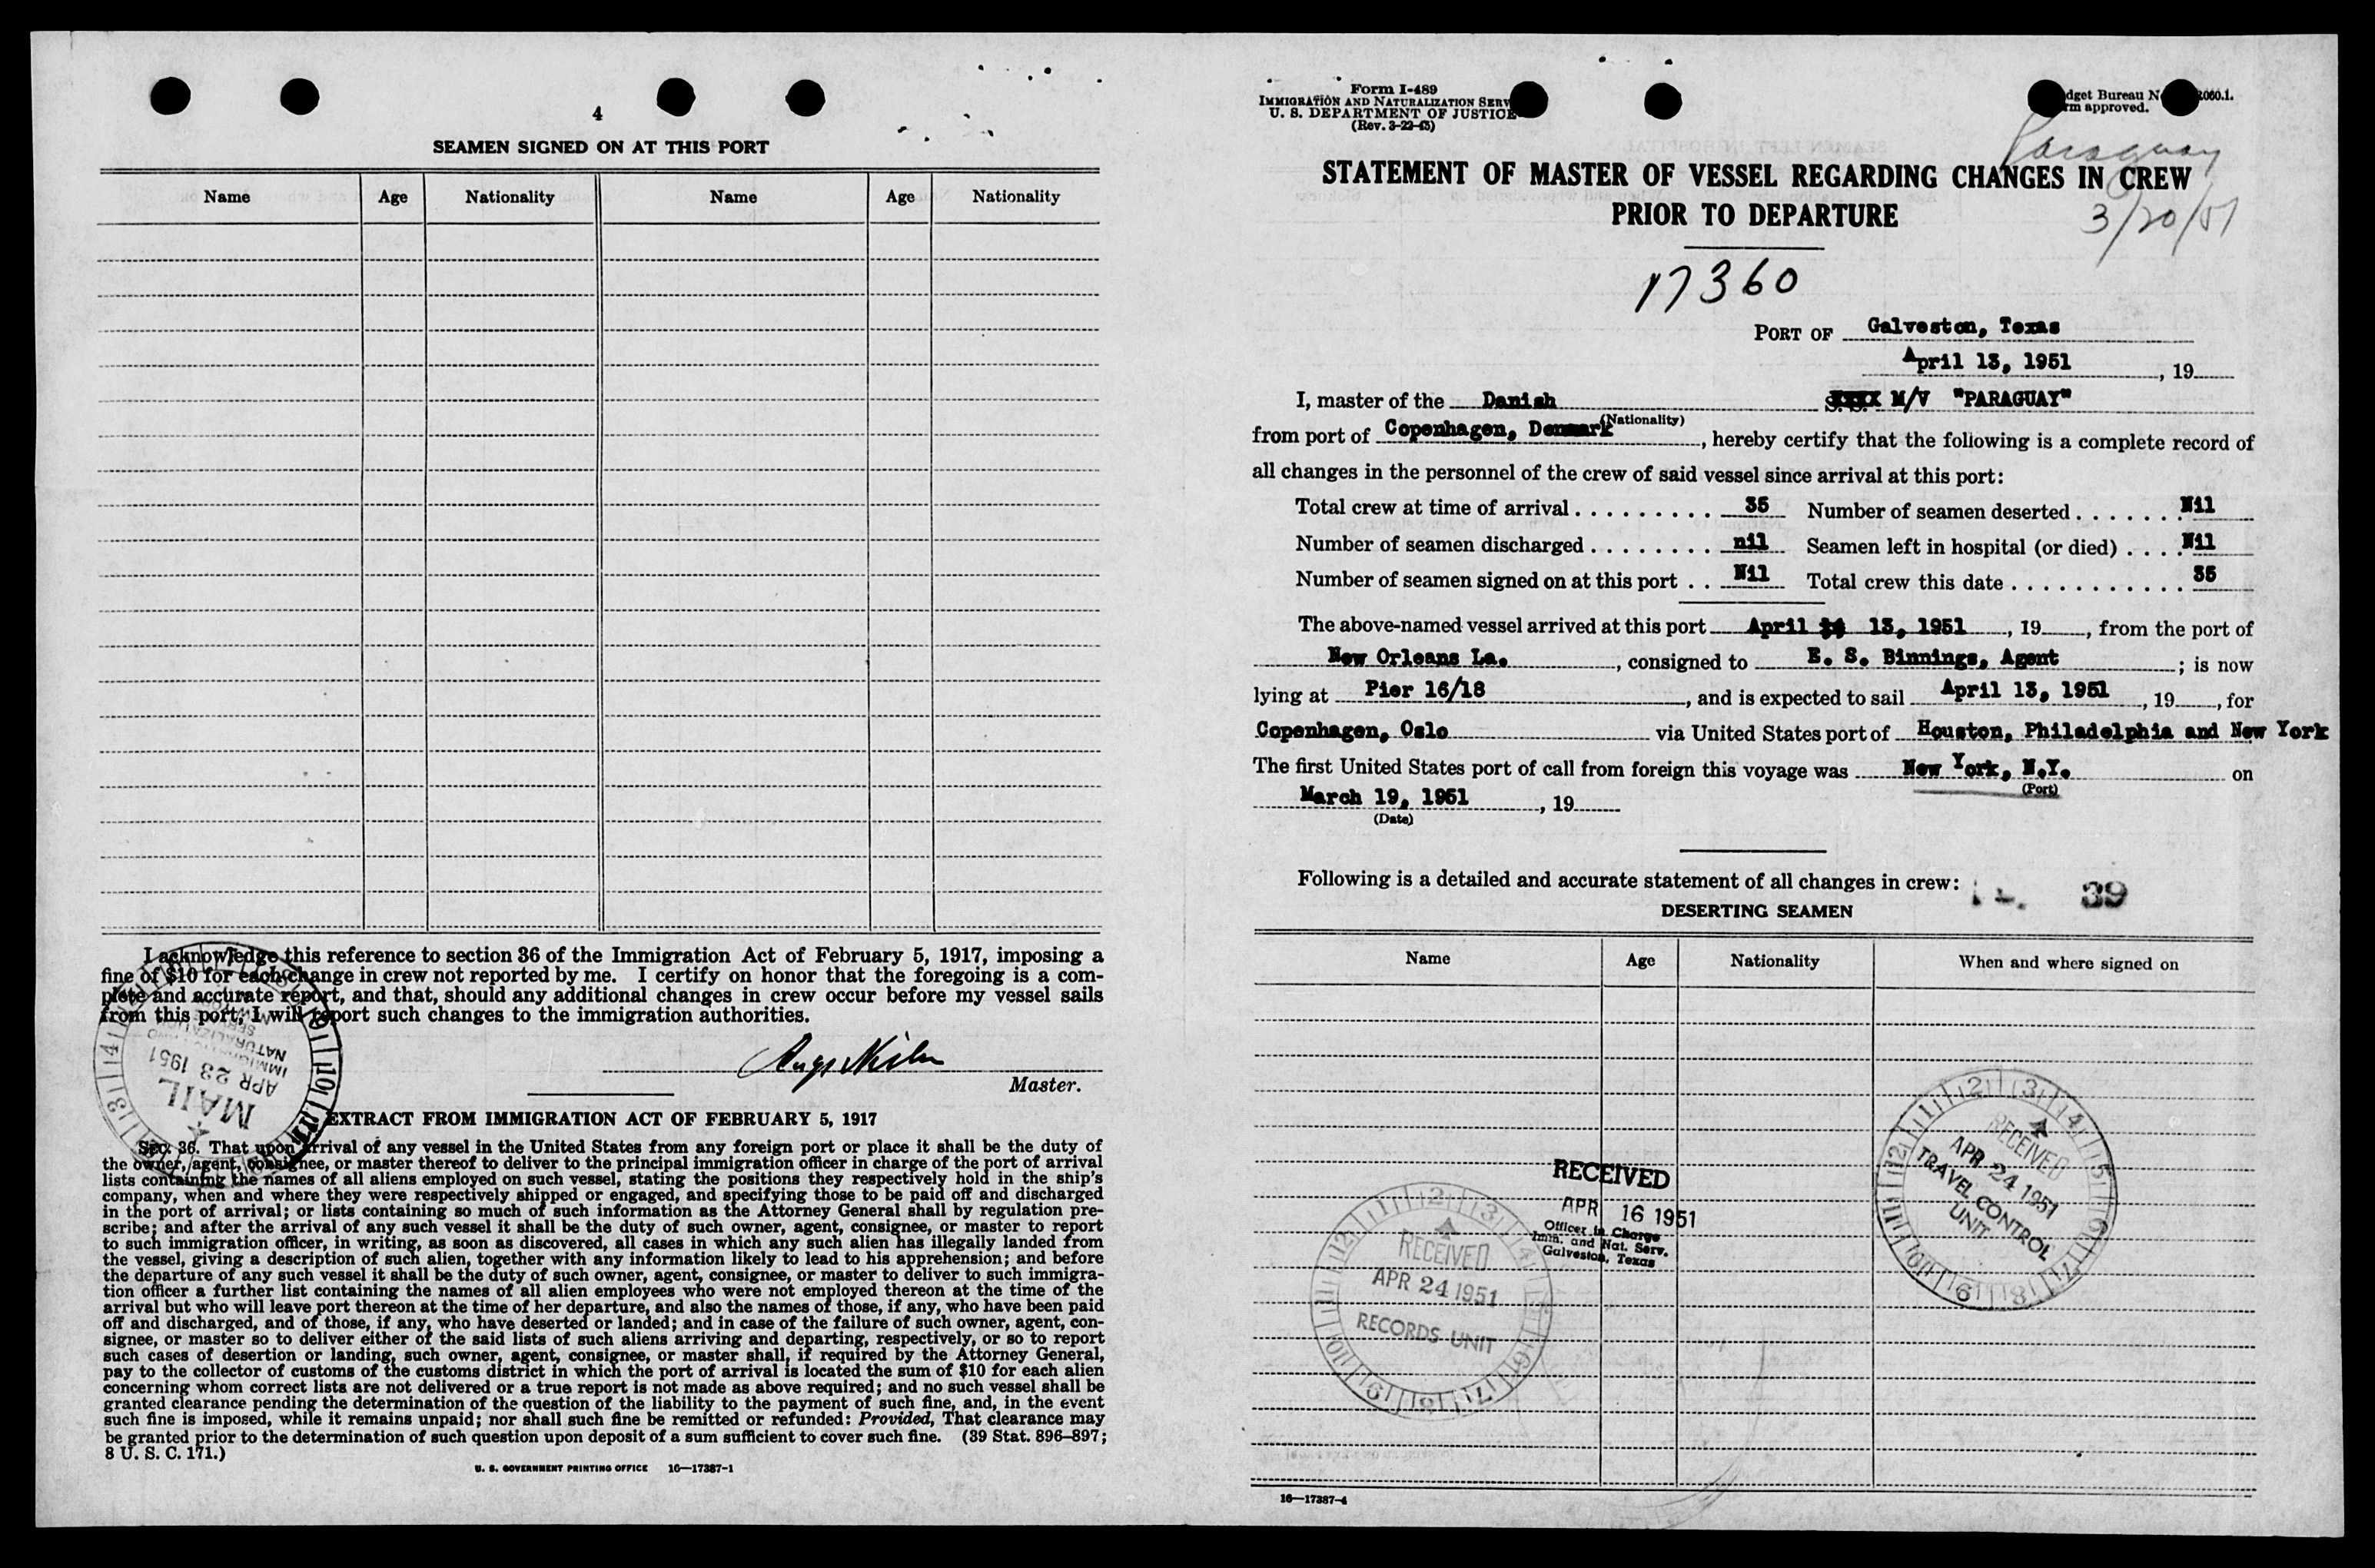 4
SEAMEN SIGNED ON AT THIS PORT
Name Age Nationality Name Age Nationality
I acknowledge this reference to section 36 of the Immigration Act of February 5, 1917, imposing a
fine of $10 for each change in crew not reported by me. I certify on honor that the foregoing is a com-
plete and accurate report, and that, should any additional changes in crew occur before my vessel sails
from this port, I will report such changes to the immigration authorities.
Master.
MAIL
APR 23 1951
EXTRACT FROM IMMIGRATION ACT OF FEBRUARY 5, 1917
Sec. 36. That upon arrival of any vessel in the United States from any foreign port or place it shall be the duty of
the owner, agent, consignee, or master thereof to deliver to the principal immigration officer in charge of the port of arrival
lists containing the names of all aliens employed on such vessel, stating the positions they respectively hold in the ship's
company, when and where they were respectively shipped or engaged, and specifying those to be paid off and discharged
in the port of arrival; or lists containing so much of such information as the Attorney General shall by regulation pre-
scribe; and after the arrival of any such vessel it shall be the duty of such owner, agent, consignee, or master to report
to such immigration officer, in writing, as soon as discovered, all cases in which any such alien has illegally landed from
the vessel, giving a description of such alien, together with any information likely to lead to his apprehension; and before
the departure of any such vessel it shall be the duty of such owner, agent, consignee, or master to deliver to such immigra-
tion officer a further list containing the names of all alien employees who were not employed thereon at the time of the
arrival but who will leave port thereon at the time of her departure, and also the names of those, if any, who have been paid
off and discharged, and of those, if any, who have deserted or landed; and in case of the failure of such owner, agent, con-
signee, or master so to deliver either of the said lists of such aliens arriving and departing, respectively, or so to report
such cases of desertion or landing, such owner, agent, consignee, or master shall, if required by the Attorney General,
pay to the collector of customs of the customs district in which the port of arrival is located the sum of $10 for each alien
concerning whom correct lists are not delivered or a true report is not made as above required; and no such vessel shall be
granted clearance pending the determination of the question of the liability to the payment of such fine, and, in the event
such fine is imposed, while it remains unpaid; nor shall such fine be remitted or refunded: Provided, That clearance may
be granted prior to the determination of such question upon deposit of a sum sufficient to cover such fine. (39 Stat. 896–897;
8 U. S. C. 171.)
U. S. GOVERNMENT PRINTING OFFICE 16—17387-1
Form I-489
IMMIGRATION AND NATURALIZATION SERV
U. S. DEPARTMENT OF JUSTICE
(Rev. 3-22-45)
dget Bureau N 2060.1.
rm approved.
Paraguay
3/20/51
STATEMENT OF MASTER OF VESSEL REGARDING CHANGES IN CREW
PRIOR TO DEPARTURE
17360
PORT OF Galveston, Texas
April 13, 1951, 19
I, master of the Danish M/V "PARAGUAY"
(Nationality)
from port of Copenhagen, Denmark, hereby certify that the following is a complete record of
all changes in the personnel of the crew of said vessel since arrival at this port:
Total crew at time of arrival . . . . . . . . . 35 Number of seamen deserted . . . . . . . Nil
Number of seamen discharged . . . . . . . . nil Seamen left in hospital (or died) . . . . Nil
Number of seamen signed on at this port . . Nil Total crew this date . . . . . . . . . . . 35
The above-named vessel arrived at this port April 13, 1951, 19, from the port of
New Orleans La., consigned to E. S. Binnings, Agent; is now
lying at Pier 16/18, and is expected to sail April 13, 1951, 19, for
Copenhagen, Oslo via United States port of Houston, Philadelphia and New York
The first United States port of call from foreign this voyage was New York, N.Y. on
(Port)
March 19, 1951, 19
(Date)
Following is a detailed and accurate statement of all changes in crew:
39
DESERTING SEAMEN
Name Age Nationality When and where signed on
RECEIVED
APR 16 1951
Officer in Charge
Imm. and Nat. Serv.
Galveston, Texas
RECEIVED
APR 24 1951
RECORDS UNIT
RECEIVED
APR 24 1951
TRAVEL CONTROL
UNIT
16—17387-4